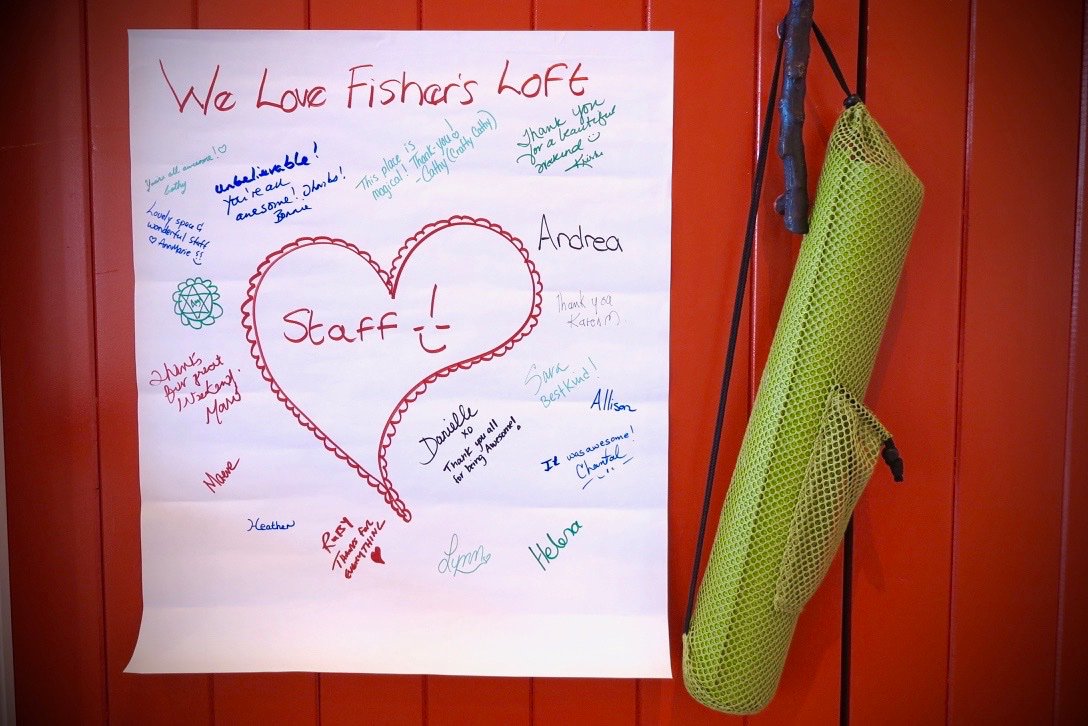 We Love Fisher's Loft
You're all awesome!
Cathy
unbelievable!
You're all
awesome! Thanks!
Bonnie
This place is
magical! Thank you!
- Cathy (Crafty Cathy)
Thank you
for a beautiful
weekend
Lovely space &
wonderful staff
AnnMarie !!
Andrea
Staff
Thank you
Karen
Thanks
for great
Weekend.
Mary
Sara
Best Kind!
Allison
Danielle
xo
Thank you all
for being Awesome!
It was awesome!
Chantal
Maeve
Heather
Ruby
Thanks for
EVERYTHING
Lynn
Helena